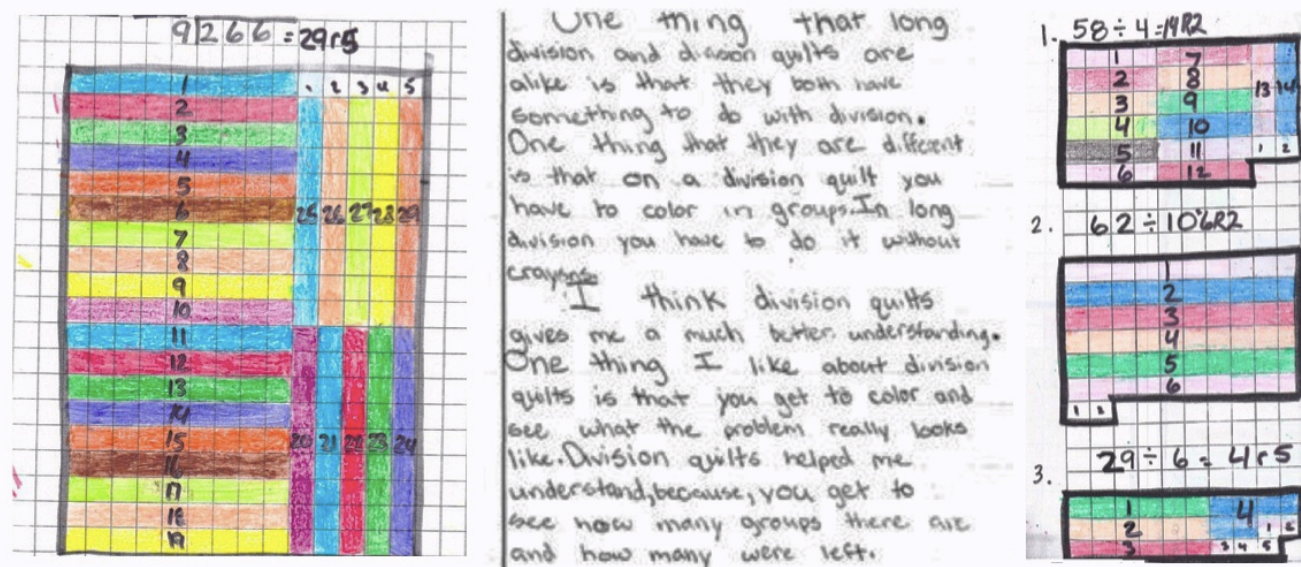 9 266 = 29 r5
1 2 3 4 5
1
2
3
4
5
6 25 26 27 28 29
7
8
9
10
11
12
13
14
15 20 21 22 23 24
16
17
18
19
One thing that long
division and divison quilts are
alike is that they both have
something to do with division.
One thing that they are different
is that on a division quilt you
have to color in groups. In long
division you have to do it without
crayons.
I think division quilts
gives me a much better understanding.
One thing I like about division
quilts is that you get to color and
see what the problem really looks
like. Division quilts helped me
understand, because, you get to
see how many groups there are
and how many were left.
1. 58 ÷ 4 = 14R2
1 7
2 8 13 14
3 9
4 10
5 11 1 2
6 12
2. 62 ÷ 10 6R2
1
2
3
4
5
6
1 2
3. 29 ÷ 6 = 4 r 5
1 4
2 1 2
3 3 4 5